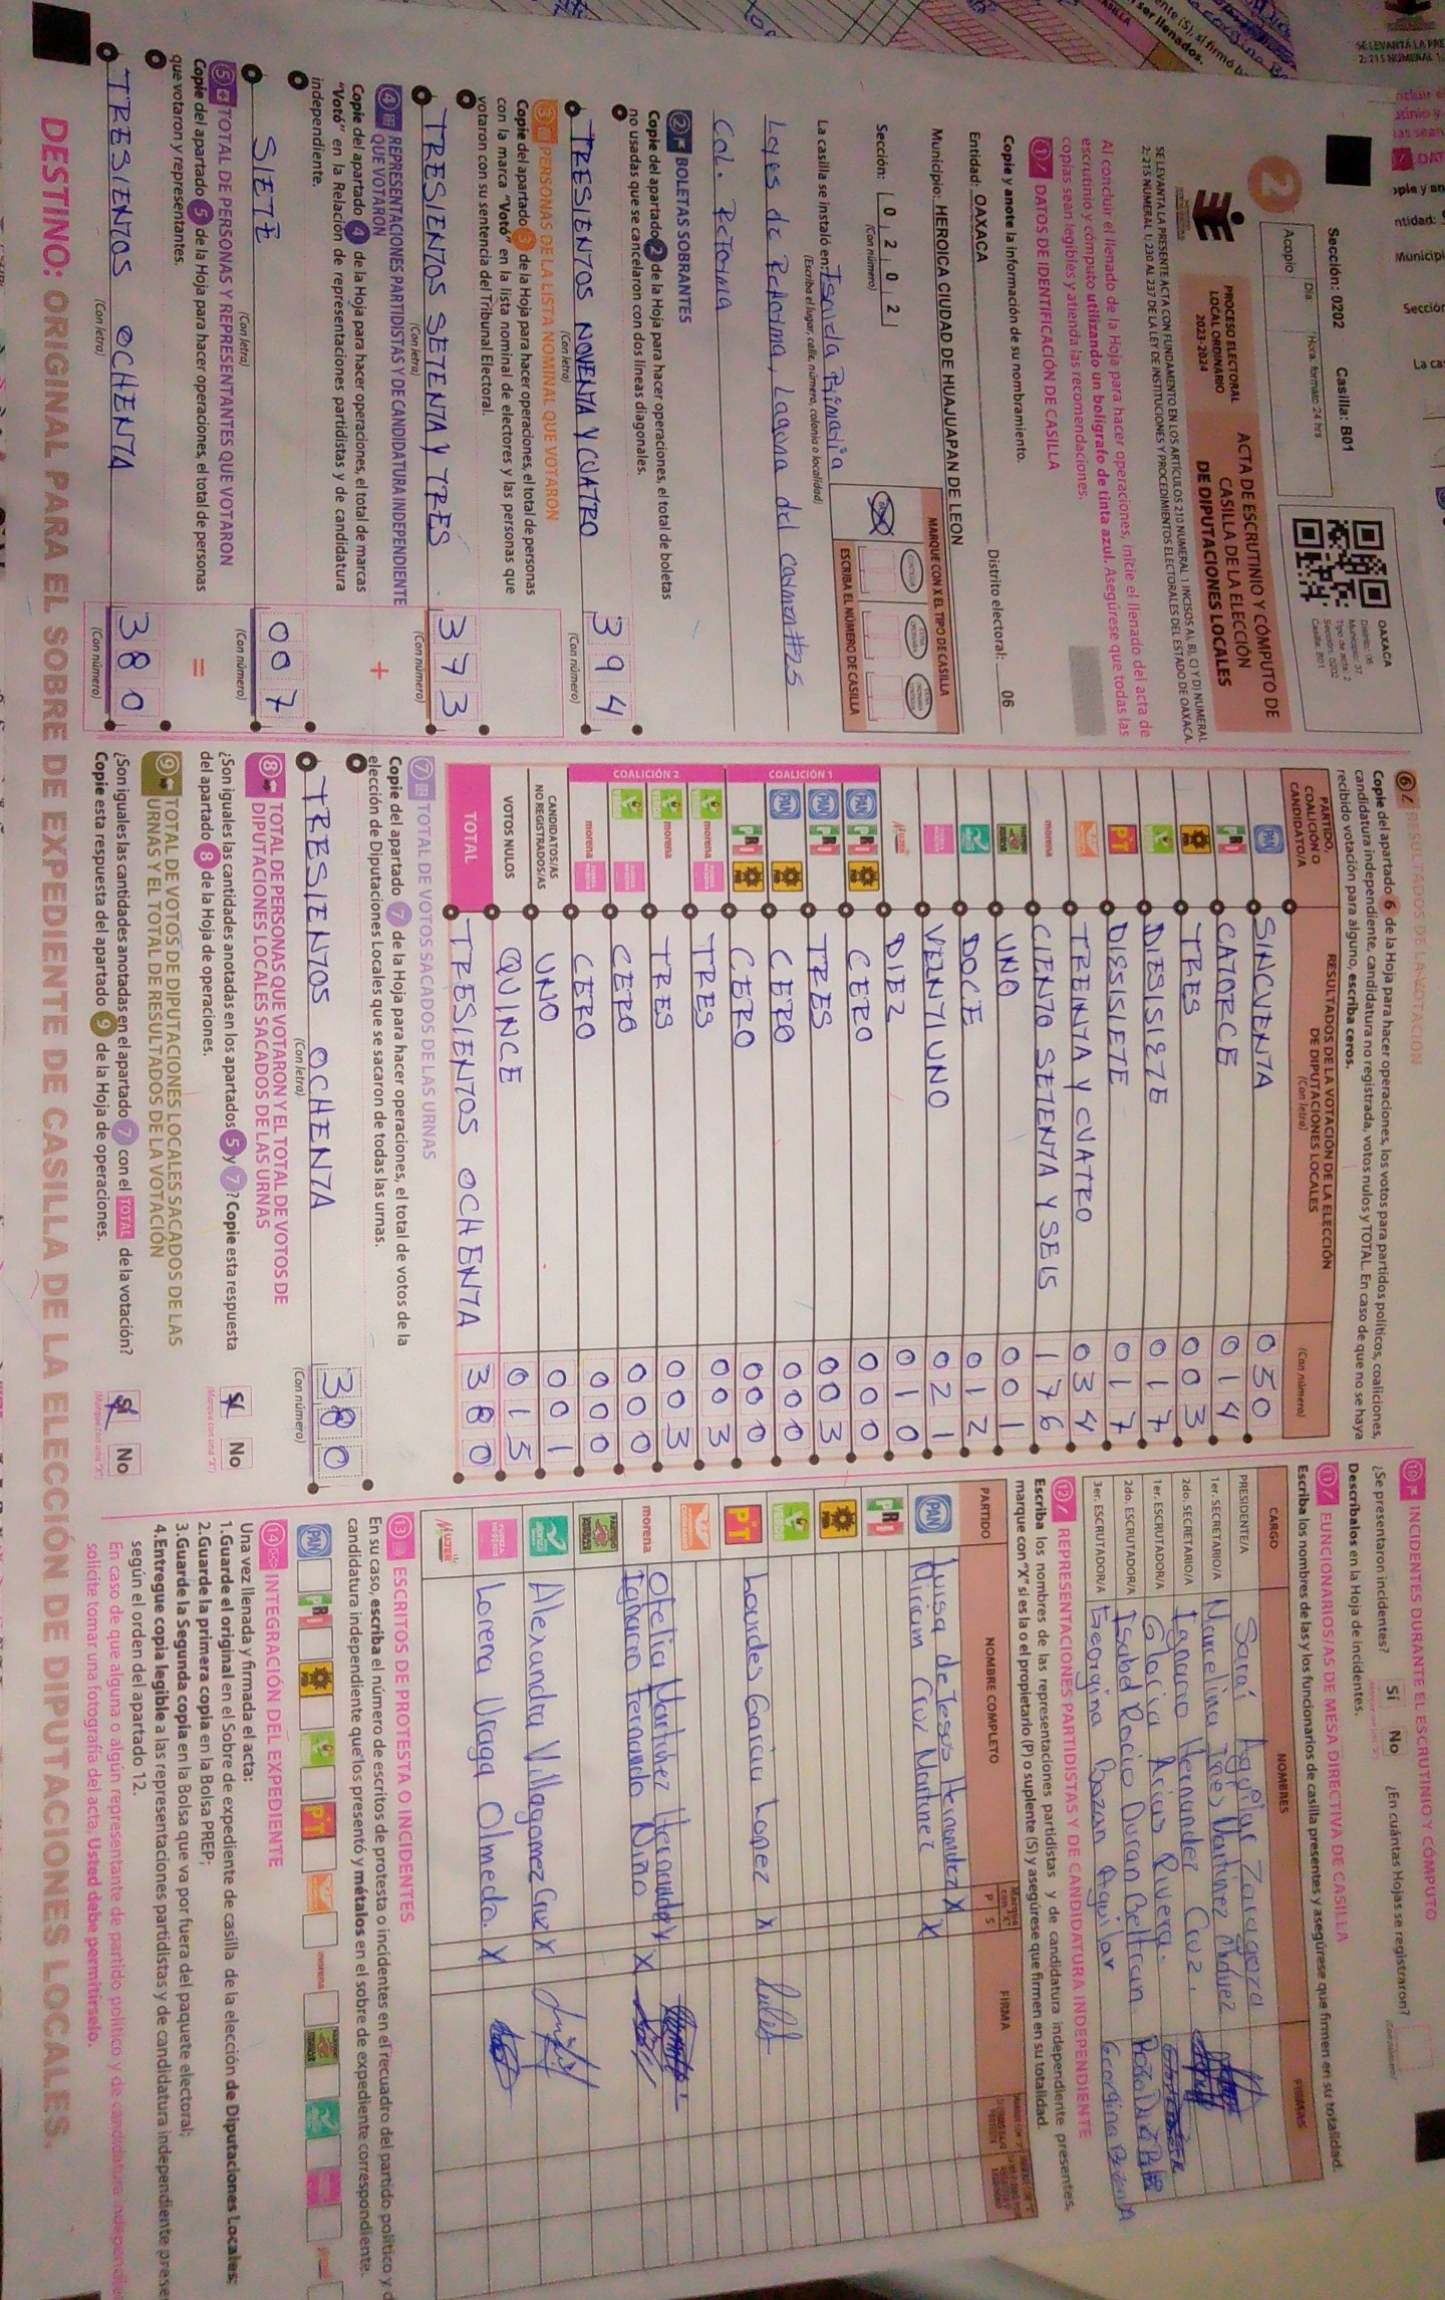 Sección: 0202 Casilla: B01
Día Hora: formato 24 hrs
Acopio
2
OAXACA
Distrito: 06
Municipio: 37
Tipo de acta: 2
Sección: 0202
Casilla: B01
PROCESO ELECTORAL
LOCAL ORDINARIO
2023-2024
ACTA DE ESCRUTINIO Y CÓMPUTO DE
CASILLA DE LA ELECCIÓN
DE DIPUTACIONES LOCALES
SE LEVANTA LA PRESENTE ACTA CON FUNDAMENTO EN LOS ARTÍCULOS 210 NUMERAL 1 INCISOS A), B), C) Y D) NUMERAL
2; 215 NUMERAL 1; 230 AL 237 DE LA LEY DE INSTITUCIONES Y PROCEDIMIENTOS ELECTORALES DEL ESTADO DE OAXACA.
Al concluir el llenado de la Hoja para hacer operaciones, inicie el llenado del acta de
escrutinio y cómputo utilizando un bolígrafo de tinta azul. Asegúrese que todas las
copias sean legibles y atienda las recomendaciones.
1 DATOS DE IDENTIFICACIÓN DE CASILLA
Copie y anote la información de su nombramiento.
Entidad: OAXACA Distrito electoral: 06
Municipio: HEROICA CIUDAD DE HUAJUAPAN DE LEON
Sección: 0202
(Con número)
MARQUE CON X EL TIPO DE CASILLA
ESCRIBA EL NÚMERO DE CASILLA
La casilla se instaló en:
(Escriba el lugar, calle, número, colonia o localidad)
Leyes de Reforma, Laguna del carmen #25
Col. Reforma
2 BOLETAS SOBRANTES
Copie del apartado 2 de la Hoja para hacer operaciones, el total de boletas
no usadas que se cancelaron con dos líneas diagonales.
TRESIENTOS NOVENTA Y CUATRO 394
(Con letra) (Con número)
3 PERSONAS DE LA LISTA NOMINAL QUE VOTARON
Copie del apartado 3 de la Hoja para hacer operaciones, el total de personas
con la marca "Votó" en la lista nominal de electores y las personas que
votaron con su sentencia del Tribunal Electoral.
TRESIENTOS SETENTA Y TRES 373
(Con letra) (Con número)
4 REPRESENTACIONES PARTIDISTAS Y DE CANDIDATURA INDEPENDIENTE
QUE VOTARON
+
Copie del apartado 4 de la Hoja para hacer operaciones, el total de marcas
"Votó" en la Relación de representaciones partidistas y de candidatura
independiente.
SIETE 007
(Con letra) (Con número)
5 TOTAL DE PERSONAS Y REPRESENTANTES QUE VOTARON
=
Copie del apartado 5 de la Hoja para hacer operaciones, el total de personas
que votaron y representantes.
TRESIENTOS OCHENTA 380
(Con letra) (Con número)
6 RESULTADOS DE LA VOTACIÓN
Copie del apartado 6 de la Hoja para hacer operaciones, los votos para partidos políticos, coaliciones,
candidatura independiente, candidatura no registrada, votos nulos y TOTAL. En caso de que no se haya
recibido votación para alguno, escriba ceros.
PARTIDO, COALICIÓN O CANDIDATO/A
RESULTADOS DE LA VOTACIÓN DE LA ELECCIÓN
DE DIPUTACIONES LOCALES
(Con letra) (Con número)
PAN SINCUENTA 050
PRI CATORCE 014
TRES 003
DIESISIETE 017
PT DISSISIETE 017
TREINTA Y CUATRO 034
morena CIENTO SETENTA Y SEIS 176
UNO 001
DOCE 012
VEINTIUNO 021
DIEZ 010
COALICIÓN 1
PAN PRI CERO 000
PAN PRI TRES 003
PAN CERO 000
PRI CERO 000
COALICIÓN 2
morena TRES 003
morena TRES 003
CERO 000
morena CERO 000
CANDIDATOS/AS
NO REGISTRADOS/AS UNO 001
VOTOS NULOS QUINCE 015
TOTAL TRESIENTOS OCHENTA 380
7 TOTAL DE VOTOS SACADOS DE LAS URNAS
Copie del apartado 7 de la Hoja para hacer operaciones, el total de votos de la
elección de Diputaciones Locales que se sacaron de todas las urnas.
TRESIENTOS OCHENTA 380
(Con letra) (Con número)
8 TOTAL DE PERSONAS QUE VOTARON Y EL TOTAL DE VOTOS DE
DIPUTACIONES LOCALES SACADOS DE LAS URNAS
¿Son iguales las cantidades anotadas en los apartados 5 y 7? Copie esta respuesta
del apartado 8 de la Hoja de operaciones.
Sí No
9 TOTAL DE VOTOS DE DIPUTACIONES LOCALES SACADOS DE LAS
URNAS Y EL TOTAL DE RESULTADOS DE LA VOTACIÓN
¿Son iguales las cantidades anotadas en el apartado 7 con el TOTAL de la votación?
Copie esta respuesta del apartado 9 de la Hoja de operaciones.
Sí No
10 INCIDENTES DURANTE EL ESCRUTINIO Y CÓMPUTO
¿Se presentaron incidentes? Sí No ¿En cuántas Hojas se registraron?
Descríbalos en la Hoja de incidentes.
11 FUNCIONARIOS/AS DE MESA DIRECTIVA DE CASILLA
Escriba los nombres de las y los funcionarios de casilla presentes y asegúrese que firmen en su totalidad.
CARGO NOMBRES FIRMAS
PRESIDENTE/A Sarai Aguilar Zaragoza
1er. SECRETARIO/A Marcelina Ines Martinez
2do. SECRETARIO/A Ignacio Hernandez Cruz.
1er. ESCRUTADOR/A Glacia Arias Rivera.
2do. ESCRUTADOR/A Isabel Rocio Duran Beltran
3er. ESCRUTADOR/A Georgina Bazan Aguilar
12 REPRESENTACIONES PARTIDISTAS Y DE CANDIDATURA INDEPENDIENTE
Escriba los nombres de las representaciones partidistas y de candidatura independiente presentes,
marque con "X" si es la o el propietario (P) o suplente (S) y asegúrese que firmen en su totalidad.
PARTIDO NOMBRE COMPLETO P S FIRMA
PAN Luisa de Jesus Hernandez X
Miriam Cruz Martinez X
PRI
PT Lourdes Garcia Lopez X
morena Ofelia Martinez Hernandez X
Ignacio Fernando Niño X
Alexandra Villagomez Cruz X
Lorena Uraga Olmeda. X
13 ESCRITOS DE PROTESTA O INCIDENTES
En su caso, escriba el número de escritos de protesta o incidentes en el recuadro del partido político y
candidatura independiente que los presentó y métalos en el sobre de expediente correspondiente.
PAN PRI PT morena
14 INTEGRACIÓN DEL EXPEDIENTE
Una vez llenada y firmada el acta:
1.Guarde el original en el Sobre de expediente de casilla de la elección de Diputaciones Locales;
2.Guarde la primera copia en la Bolsa PREP;
3.Guarde la Segunda copia en la Bolsa que va por fuera del paquete electoral;
4.Entregue copia legible a las representaciones partidistas y de candidatura independiente
según el orden del apartado 12.
En caso de que alguna o algún representante de partido político y de candidatura
solicite tomar una fotografía del acta. Usted debe permitírselo.
DESTINO: ORIGINAL PARA EL SOBRE DE EXPEDIENTE DE CASILLA DE LA ELECCIÓN DE DIPUTACIONES LOCALES.